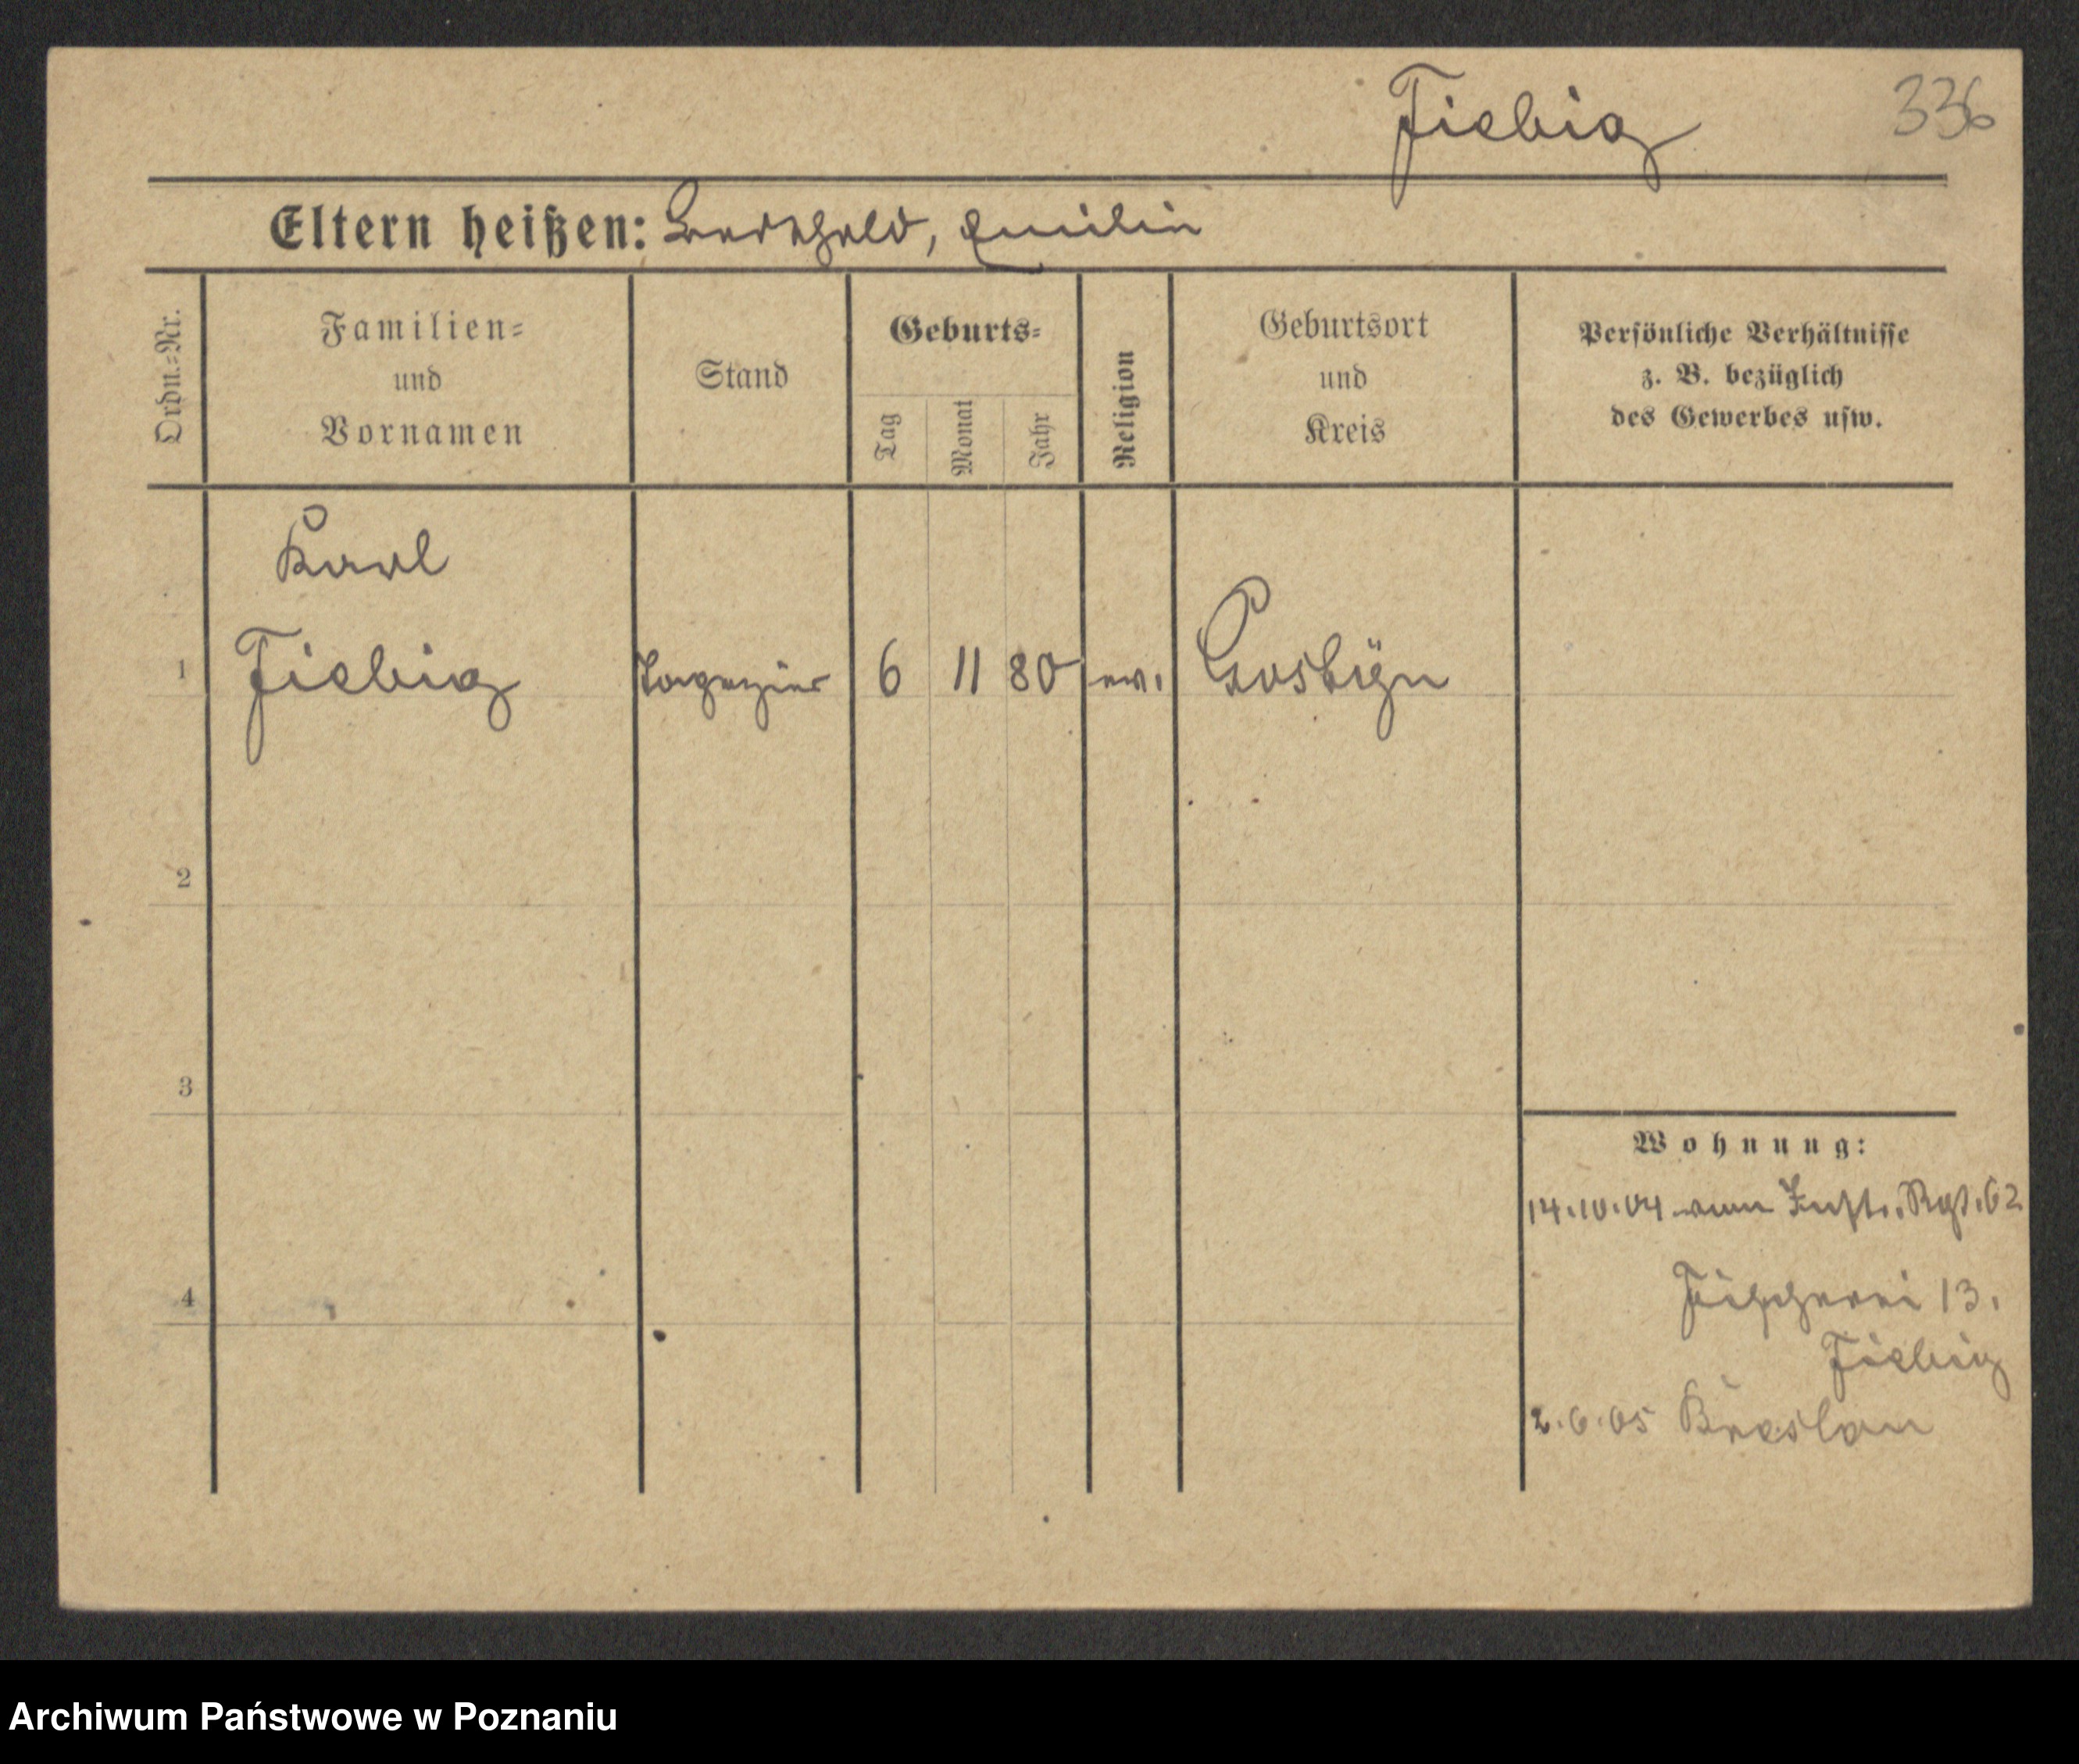 Fiebig
336
Eltern heißen: Berthold, Emilie
Ordn.=Nr.
Familien=
und
Vornamen
Stand
Geburts=
Tag
Monat
Jahr
Religion
Geburtsort
und
Kreis
Persönliche Verhältnisse
z. B. bezüglich
des Gewerbes usw.
Karl
1 Fiebig Tapezier 6 11 80 ev. Gostyn
2
3
4
Wohnung:
14.10.04 vom Inftr. Rgt. 62
Fischerei 13.
Fiebig
2.6.05 Breslau
Archiwum Państwowe w Poznaniu